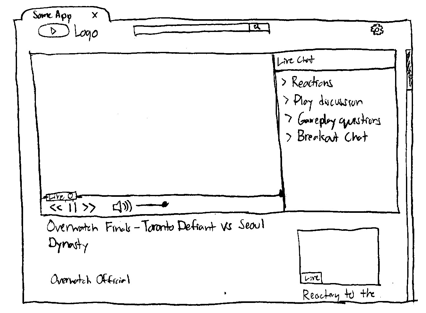 Some App X
Logo
Live Chat
> Reactions
> Play discussion
> Gameplay questions
> Breakout Chat
Live
<< || >>
Overwatch Finals - Toronto Defiant vs Seoul
Dynasty
Overwatch Official
Live
Reacting to the